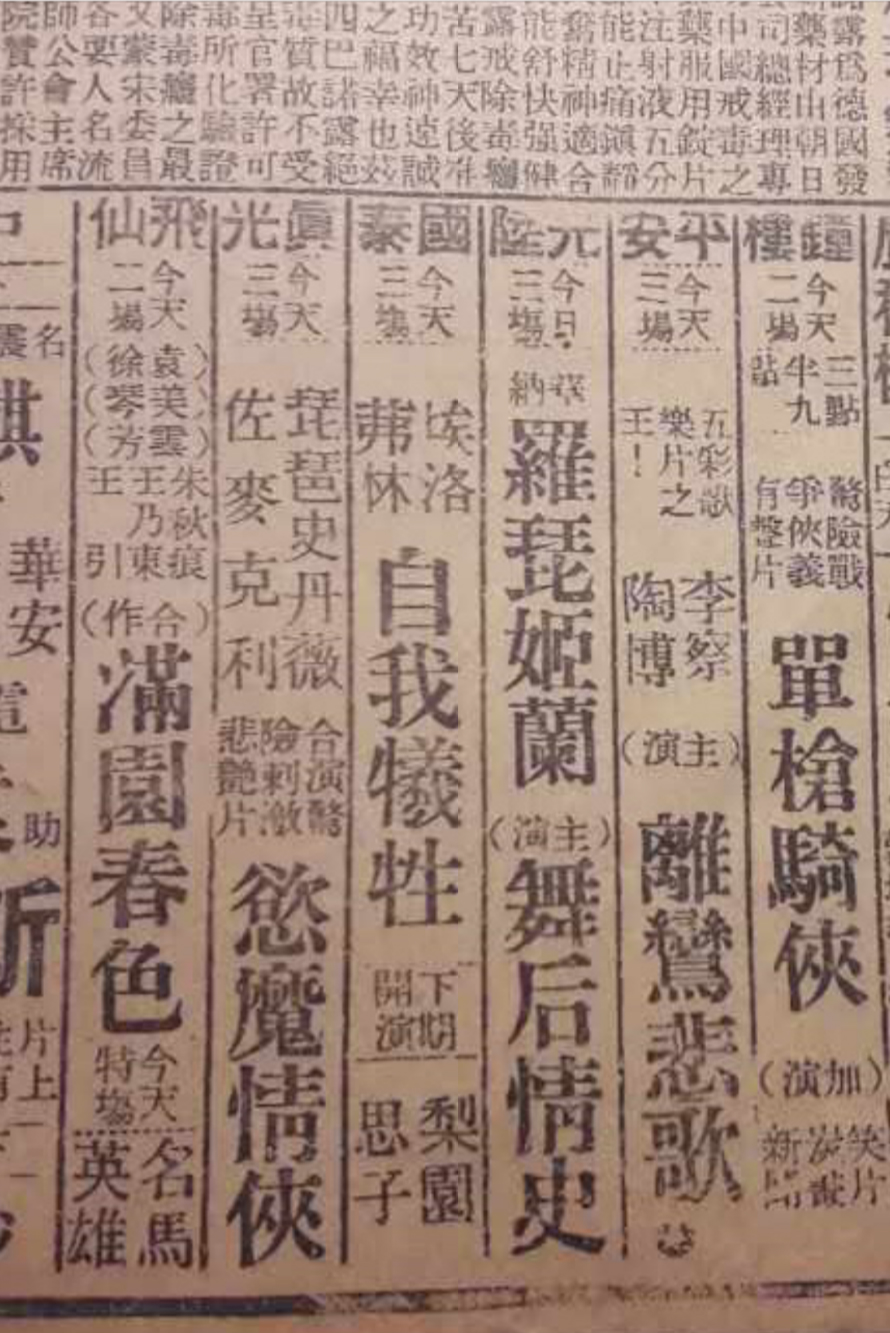 露爲德國發
藥材山朝日
司總經理專
中國戒毒之
藥服用錠片
注射液五分
能止痛鎭靜
奮精神適合
能舒快强健
露戒除毒癮
苦七天後准
功效神速誠
之福幸也茲
四巴諾露絕
毒質故不受
呈官署許可
毒所化驗證
除毒癮之最
又蒙宋委員
各要人名流
師公會主席
院贊許採用
鐘樓
今天
二場
三點
半九
點
驚險戰
爭俠義
有聲片
單槍騎俠
（加演）
笑片
滋凝
新聞
平安
今天
三場
五彩歌
樂片之
王！
李察
陶博
（主演）
離鸞悲歌
光陸
今日
三塲
羅琵姬蘭
（主演）
舞后情史
國泰
今天
三塲
埃洛
弗林
自我犧牲
下期
開演
梨園
思子
眞光
今天
三塲
琵琶史丹薇
佐麥克利
合演驚
險刺激
悲艷片
慾魔情俠
飛仙
今天
二塲
（袁美雲）
（徐琴芳）
朱秋痕
王乃東
王引
（合作）
滿園春色
今天
特塲
名馬
英雄
名
震
華安
助
新
片上